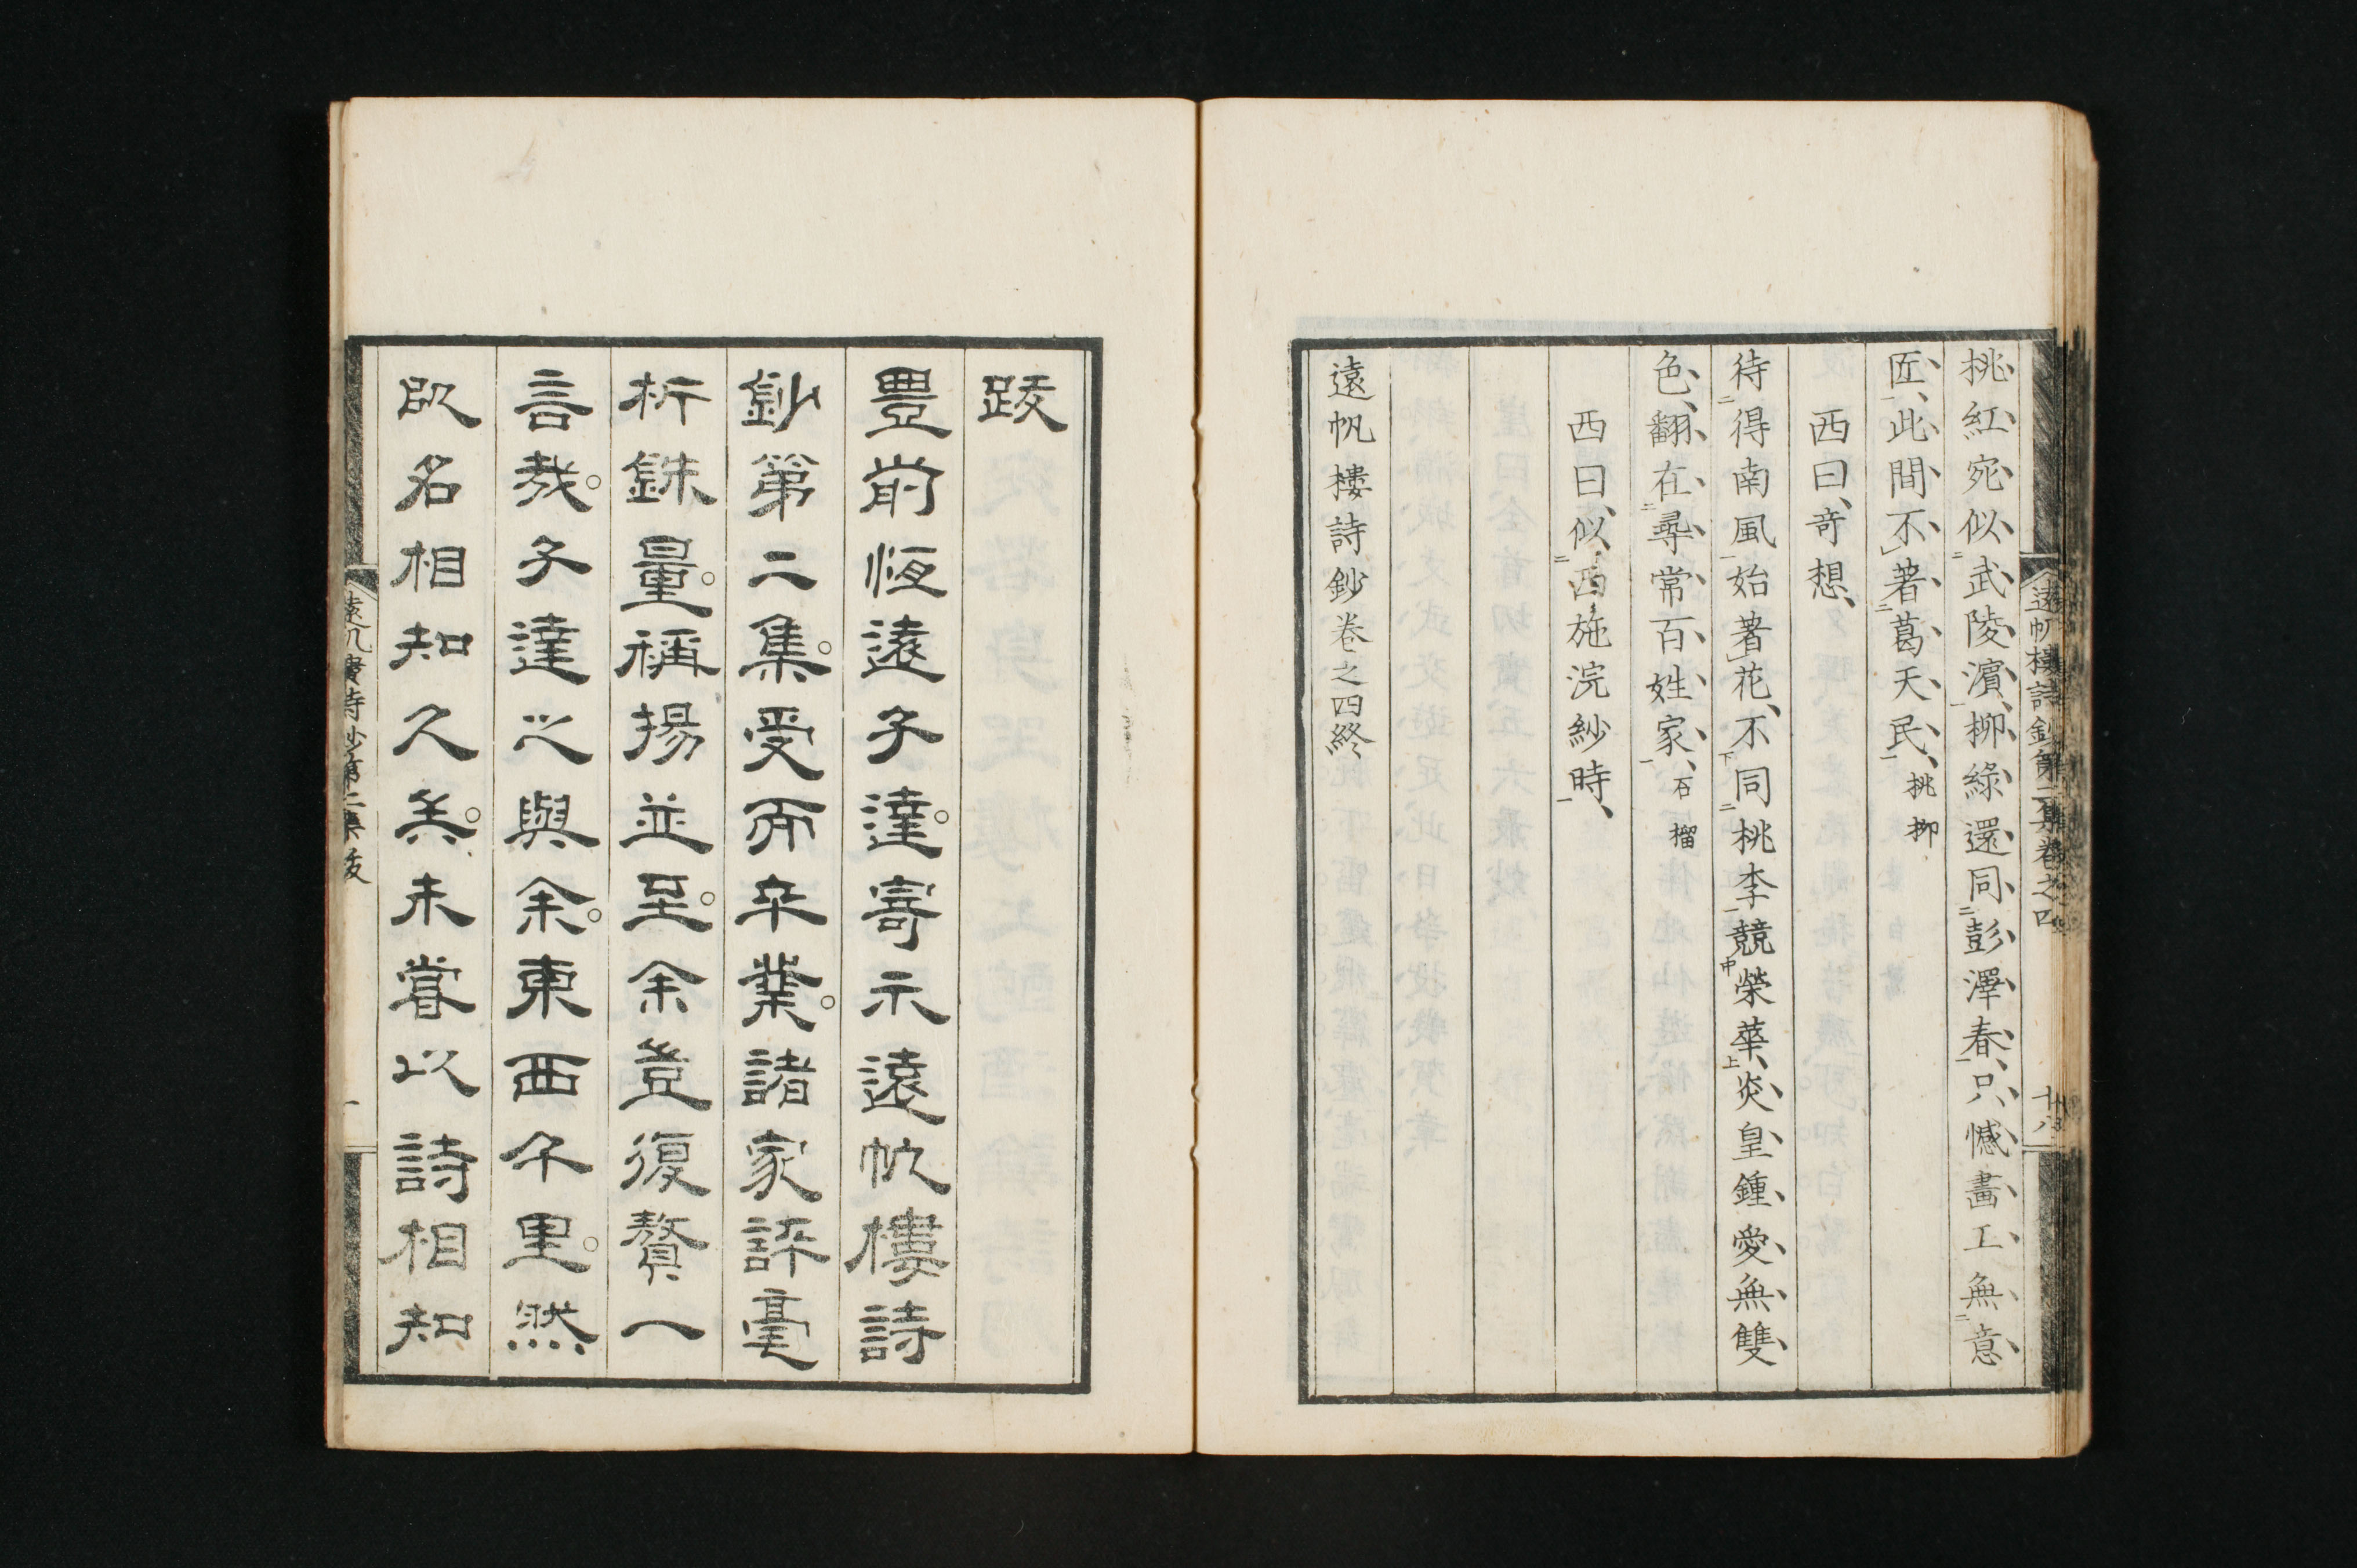 桃、紅、宛、似、武、陵、濵、柳、綠、還、同、彭、澤、春、只、憾、畵、工、無、意、
匠、此、間、不、著、葛、天、民、桃柳
西曰、竒想、
待得南風始著花、不同桃李競榮華、炎、皇、鍾、愛、無、雙、
色、翻、在、尋、常、百、姓、家、石榴
西曰、似西施浣紗時、
遠帆樓詩鈔卷之四終
遠帆樓詩鈔第二集卷之四 十八
跋
豊前恆遠子達。寄示遠帆樓詩
鈔第二集。受而卒業。諸家評毫
析銖量。稱揚並至。余豈復贅一
言哉。子達之與余。東西千里。然
以名相知久矣。未嘗以詩相知
遠帆樓詩鈔第二集跋 一